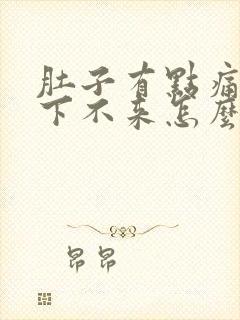 肚子有點痛
下不来怎麼
昂昂